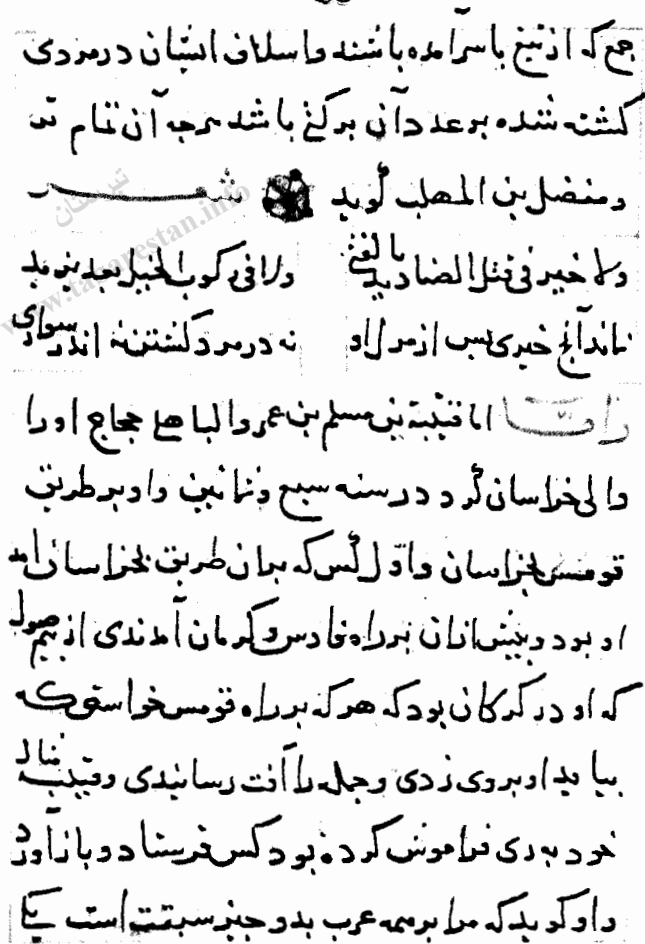 جمع که از تیغ باسرآمده باشند و اسلاف ایشان در مردی
کشته شده بر عدد آن برکنی باشد هرچه آن تمام تر
و مفضل بن المهلب گوید شعر
ولا خیر فی قتل الصنادید بالفتی ولا فی رکوب الخیل بعد یزید
نماند آنچ خیری پس از مرگ او نه در مرد کشتن نه اندر سواری
اما قتیبة بن مسلم بن عمرو الباهلی حجاج او را
والی خراسان کرد در سنه سبع و ثمانین و او بر طریق
قومس بخراسان و اول کس که بران طریق بخراسان آمد
او بود و پیش ازان بر راه فارس و کرمان آمدندی از بیم صول
که او در گرکان بود که هر که بر راه قومس خواستی که
بیاید او بروی زدی و جمله را آفت رسانیدی و قتیبه نیالـ
خود به ری فراموش کرده بود کس فرستاد و باز آورد
و او گوید که مرا بر همه عرب بدو چیز سبقت است یکی
تبرستان
www.tabarestan.info